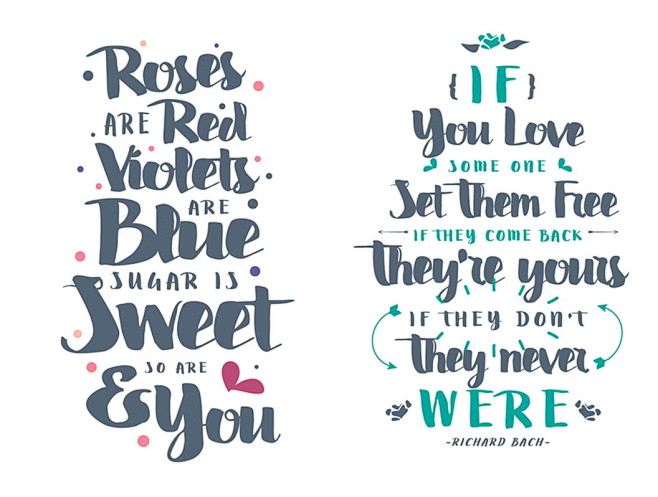 Roses
ARE Red
Violets
ARE
Blue
SUGAR IS
Sweet
SO ARE
& You
{IF}
You Love
SOME ONE
Set them Free
IF THEY COME BACK
they're yours
IF THEY DON'T
they never
WERE
-RICHARD BACH-